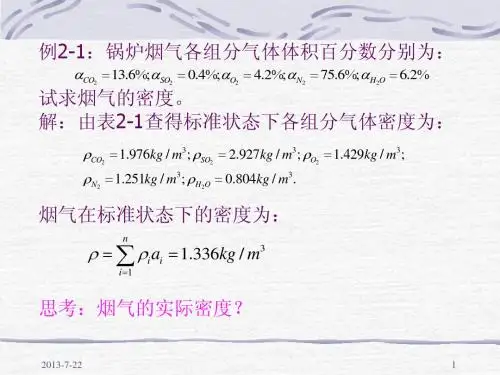 例2-1：锅炉烟气各组分气体体积百分数分别为：
α_CO₂ = 13.6%; α_SO₂ = 0.4%; α_O₂ = 4.2%; α_N₂ = 75.6%; α_H₂O = 6.2%
试求烟气的密度。
解：由表2-1查得标准状态下各组分气体密度为：
ρ_CO₂ = 1.976kg / m³; ρ_SO₂ = 2.927kg / m³; ρ_O₂ = 1.429kg / m³;
ρ_N₂ = 1.251kg / m³; ρ_H₂O = 0.804kg / m³.
烟气在标准状态下的密度为：
ρ = ∑_{i=1}^{n} ρ_i a_i = 1.336kg / m³
思考：烟气的实际密度？
2013-7-22 1